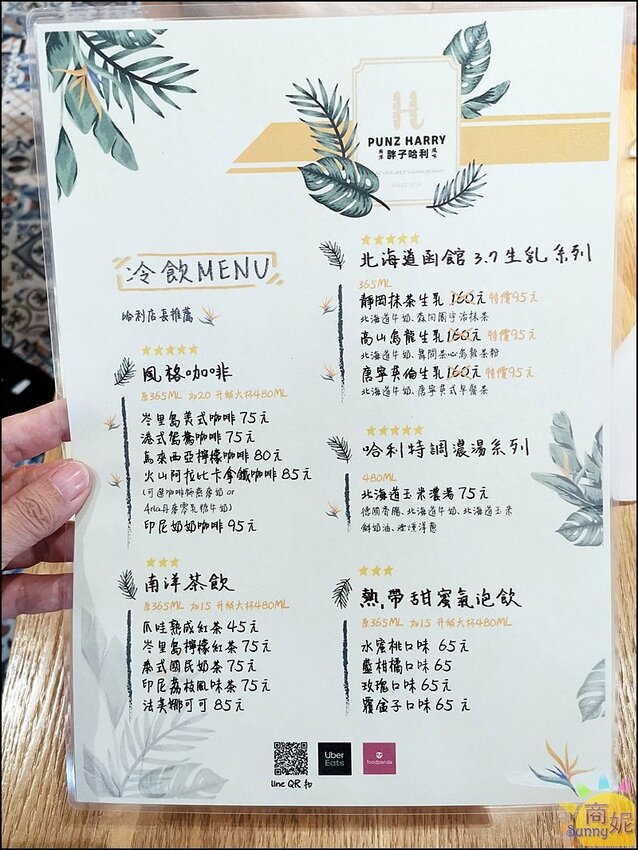 H
PUNZ HARRY
南洋 胖子哈利 風味
SINCE 2019
冷飲MENU
哈利店長推薦
風格咖啡
原365ML 加20 升級大杯480ML
峇里島美式咖啡 75元
港式鴛鴦咖啡 75元
馬來西亞檸檬咖啡 80元
火山阿拉比卡拿鐵咖啡 85元
印尼奶奶咖啡 95元
南洋茶飲
原365ML 加15 升級大杯480ML
爪哇熟成紅茶 45元
峇里島檸檬紅茶 75元
泰式國民奶茶 75元
印尼荔枝風味茶 75元
法芙娜可可 85元
北海道函館 3.7 生乳系列
365ML
靜岡抹茶生乳 160元 特價95元
北海道牛奶、森内園宇治抹茶
高山烏龍生乳 160元 特價95元
唐寧英伯生乳 160元 特價95元
北海道牛奶、唐寧英式早餐茶
哈利特調濃湯系列
480ML
北海道玉米濃湯 75元
德國香腸、北海道牛奶、北海道玉米
鮮奶油、煙燻洋蔥
熱帶甜蜜氣泡飲
原365ML 加15 升級大杯480ML
水蜜桃口味 65元
藍柑橘口味 65
玫瑰口味 65元
覆盆子口味 65 元
Uber Eats
foodpanda
line QR 扣
商妮
Sunny